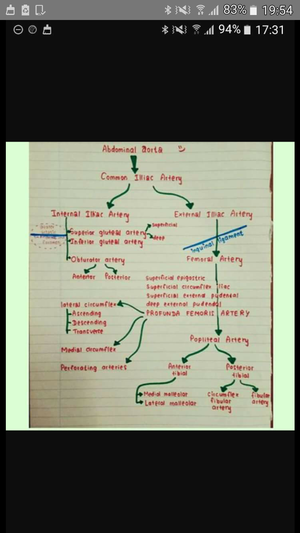 83% 19:54
94% 17:31
Abdominal Aorta
Common Illiac Artery
Internal Illiac Artery
External Illiac Artery
Superior gluteal artery
Superficial
Deep
Inferior gluteal artery
Inguinal ligament
Obturator artery
Femoral Artery
Anterior
Posterior
Superficial epigastric
Superficial circumflex Iliac
Superficial external pudendal
deep external pudendal
PROFUNDA FEMORIS ARTERY
lateral circumflex
Ascending
Descending
Transverse
Popliteal Artery
Medial circumflex
Perforating arteries
Anterior tibial
Posterior tibial
Medial malleolar
Lateral malleolar
circumflex fibular artery
fibular artery